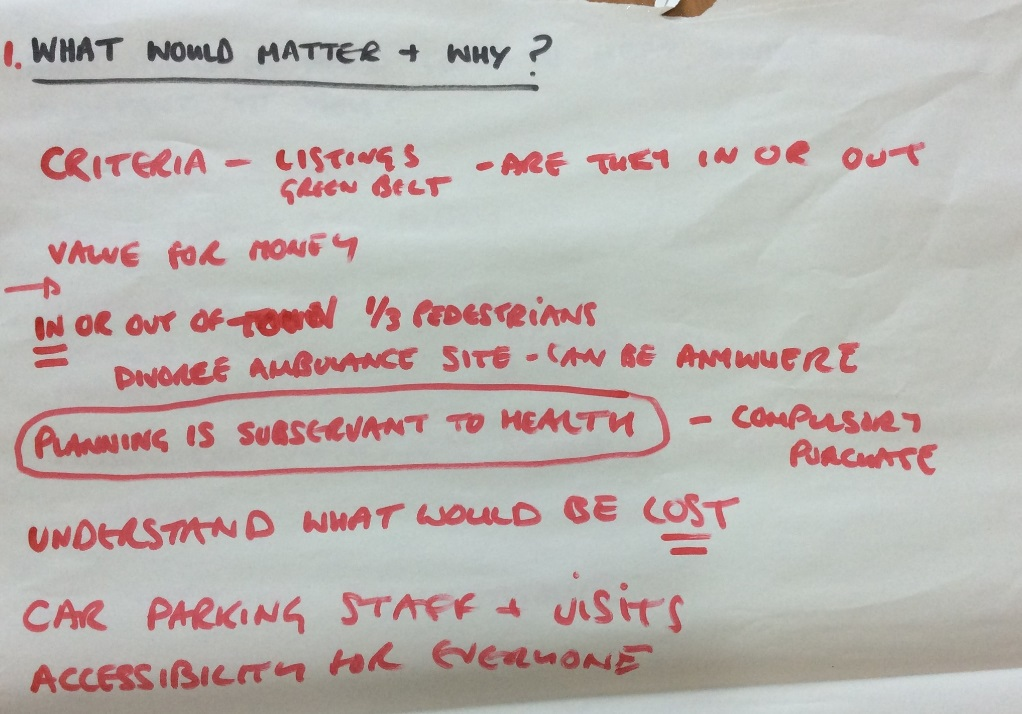 1. WHAT WOULD MATTER + WHY?
CRITERIA - LISTINGS - ARE THEY IN OR OUT
GREEN BELT
VALUE FOR MONEY
→
IN OR OUT OF TOWN 1/3 PEDESTRIANS
DIVORCE AMBULANCE SITE - CAN BE ANYWHERE
PLANNING IS SUBSERVANT TO HEALTH - COMPULSORY
PURCHASE
UNDERSTAND WHAT WOULD BE LOST
CAR PARKING STAFF + VISITS
ACCESSIBILITY FOR EVERYONE